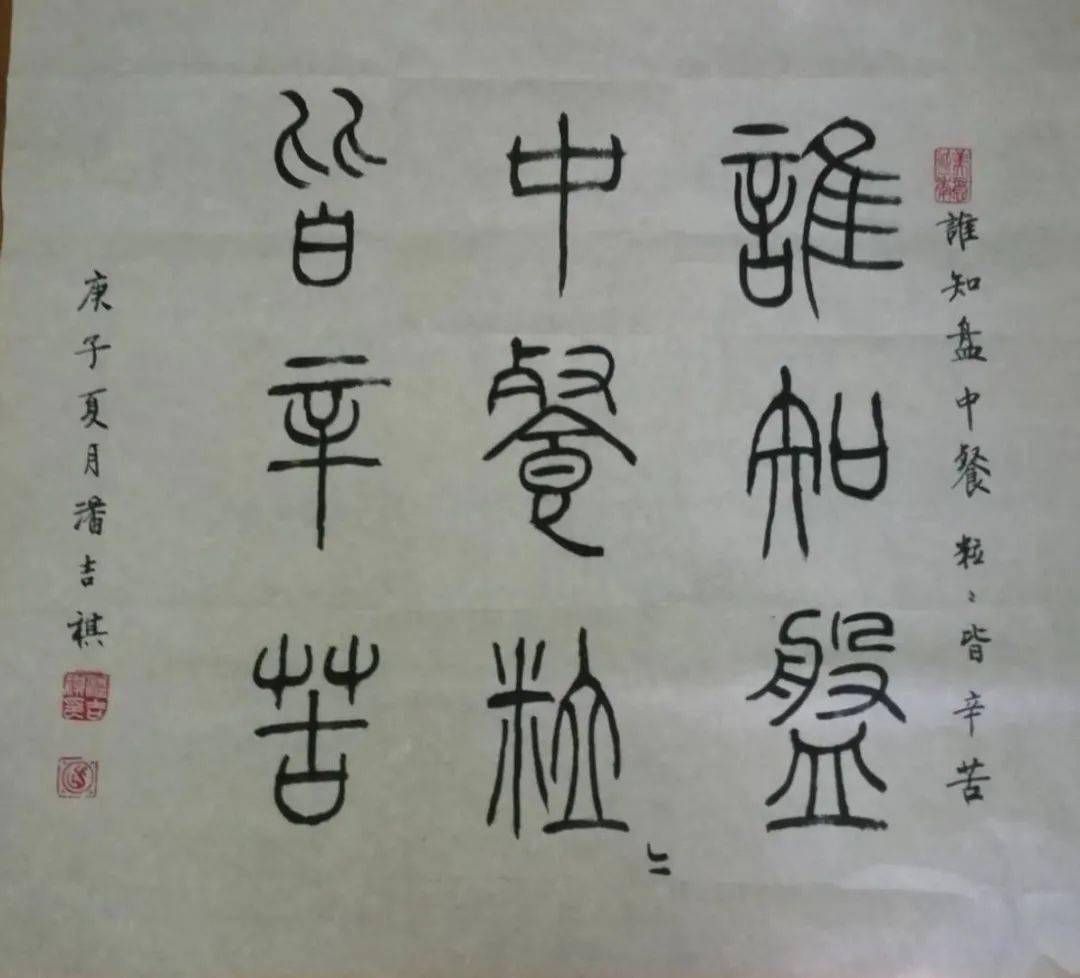 誰知盤中餐 粒〻皆辛苦
誰知盤
中餐粒〻
皆辛苦
庚子夏月潘吉祺